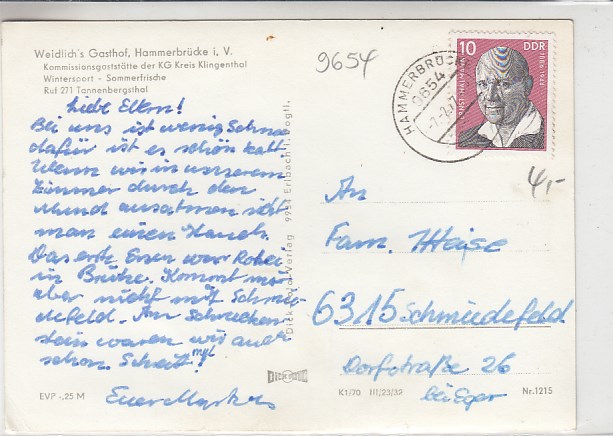 Weidlich's Gasthof, Hammerbrücke i. V.
Kommissionsgaststätte der KG Kreis Klingenthal
Wintersport - Sommerfrische
Ruf 271 Tannenbergsthal
9654
10 DDR
HAMMERBRÜCKE
9654
Liebe Eltern!
Bei uns ist wenig Schnee
dafür ist es schön kalt.
Wenn wir in unserem
Zimmer durch den
Mund ausatmen sieht
man einen Hauch.
Das erste Essen war
in Brühe. Kommt mir
aber nicht mit Schmie-
defeld. Am Schnecken-
stein waren wir auch
schon.
Euer Markus
Dick-Foto-Verlag 9931 Erlbach i. Vogtl.
4,-
An
Fam. Heise
6315 Schmiedefeld
Dorfstraße 26
EVP -,25 M
K1/70 III/23/32
Nr. 1215